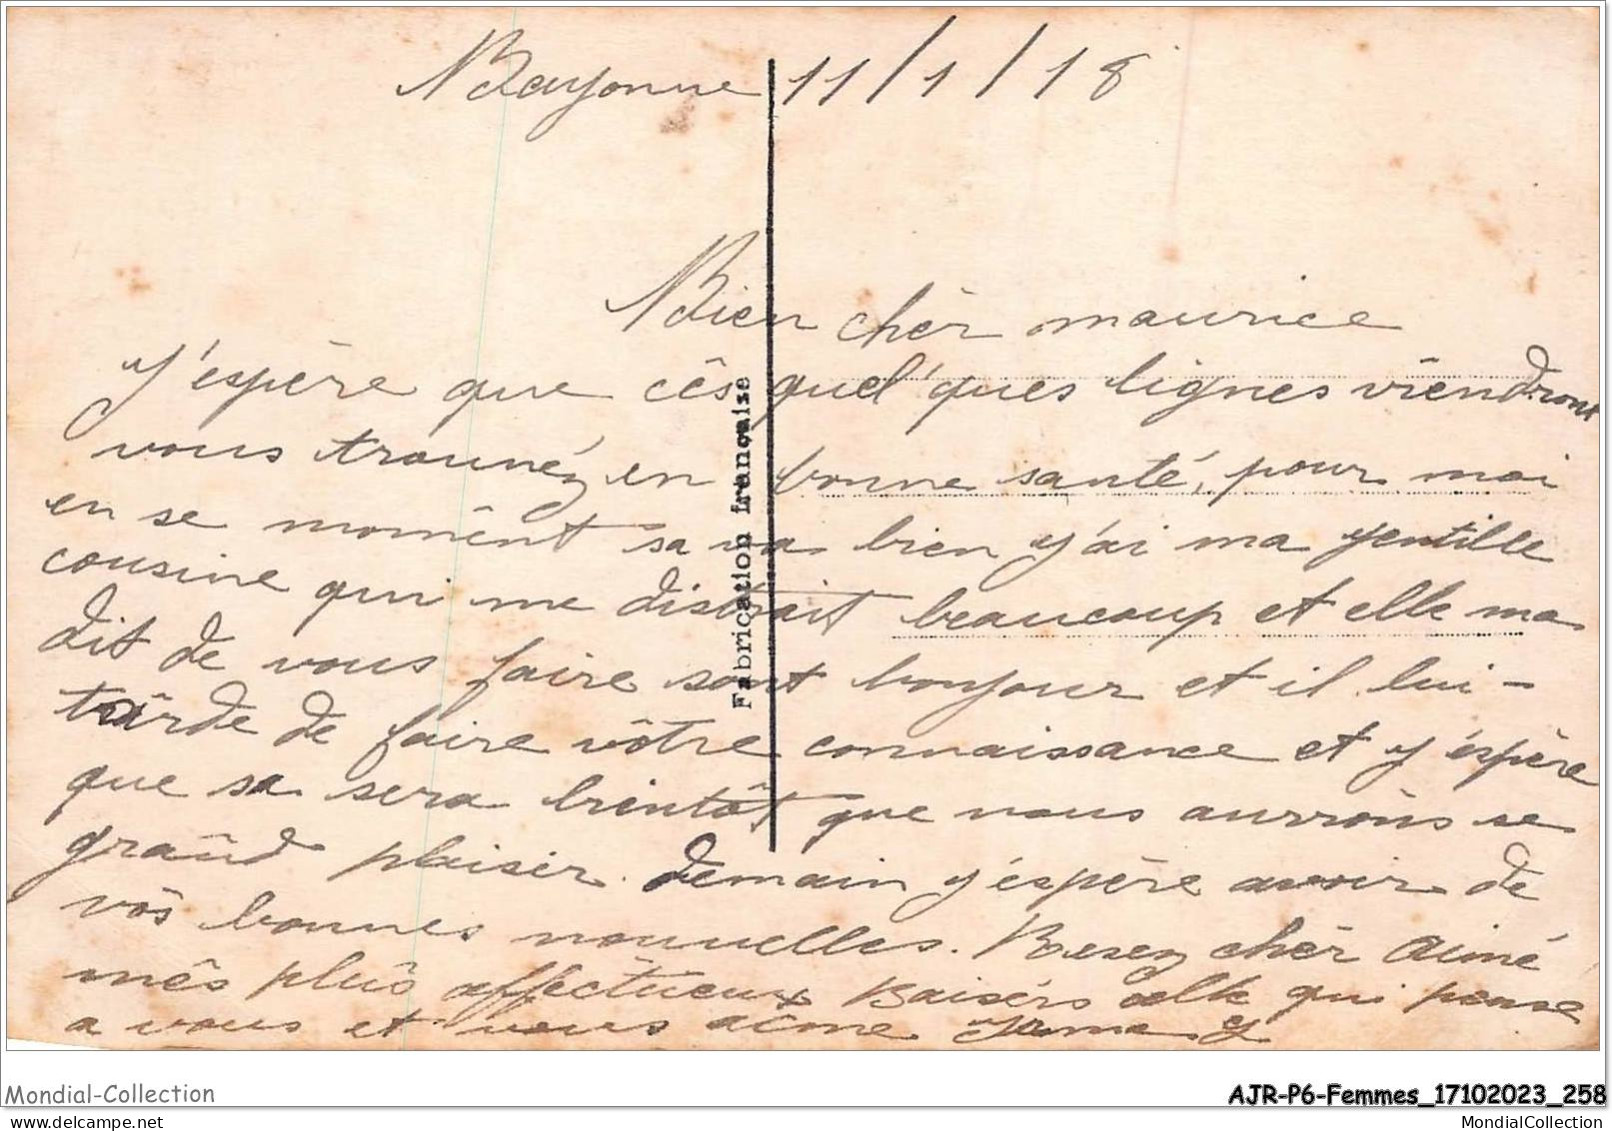 Bayonne 11/1/18
Bien chèr maurice
J'éspère que cês quel'ques lignes viêndront
vous trouvéz en bonne santé, pour moi
en se momênt sa va bien j'ai ma gentille
cousine qui me distrait beaucoup et elle ma
dit de vous faire sont bonjour et il lui-
tarde de faire vôtre connaissance et j'éspère
que sa sera bientôt que nous aurrons se
grand plaisir. demain j'éspère avoir de
vôs bonnes nouvelles. Resez chèr Aimé
mês plûs affectueux Baisérs celle qui pense
a vous et vous aime
Fabrication française
Mondial-Collection
AJR-P6-Femmes_17102023_258
https://www.mondialcollection.com
MondialCollection